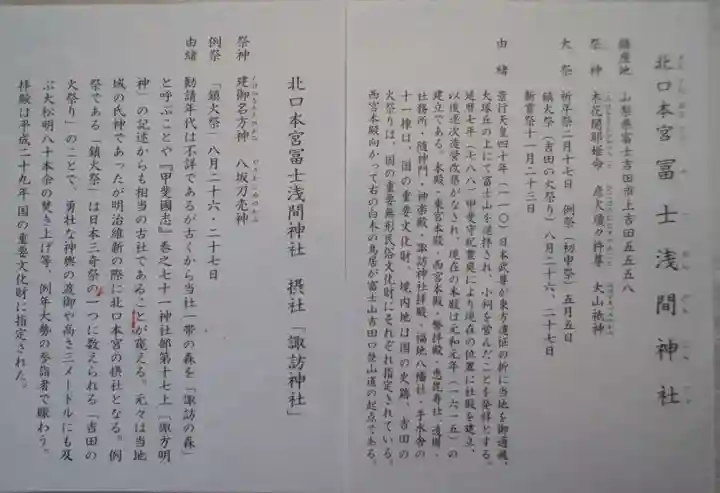 北口本宮冨士浅間神社
鎮座地 山梨県富士吉田市上吉田五五五八
祭神 木花開耶姫命 彦火瓊々杵尊 大山祇神
大祭 祈年祭二月十七日 例祭(初申祭)五月五日
鎮火祭(吉田の火祭り)八月二十六、二十七日
新嘗祭十一月二十三日
由緒 景行天皇四十年(一一〇)日本武尊が東方遠征の折に当地を御通過、
大塚丘の上にて富士山を遥拝され、小祠を営んだことを発祥とする。
延暦七年(七八八)甲斐守紀豊庭により現在の位置に社殿を建立、
以後逐次造営改築がなされ、現在の本殿は元和元年(一六一五)の
建立である。本殿・東宮本殿・西宮本殿・幣拝殿・恵毘寿社・透塀・
社務所・随神門・神楽殿・諏訪神社拝殿・福地八幡社・手水舎の
十一棟は、国の重要文化財、境内地は国の史跡、吉田の
火祭りは、国の重要無形民俗文化財にそれぞれ指定されている。
西宮本殿向かって右の白木の鳥居が富士山吉田口登山道の起点である。
北口本宮冨士浅間神社 摂社「諏訪神社」
祭神 建御名方神 八坂刀売神
例祭 「鎮火祭」八月二十六・二十七日
由緒 勧請年代は不詳であるが古くから当社一帯の森を「諏訪の森」
と呼ぶことや『甲斐國志』巻之七十一神社部第十七上「諏方明
神」の記述からも相当の古社であることが窺える。元々は当地
域の氏神であったが明治維新の際に北口本宮の摂社となる。例
祭である「鎮火祭」は日本三奇祭の一つに数えられる「吉田の
火祭り」のことで、勇壮な神輿の渡御や高さ三メートルにも及
ぶ大松明八十本余の焚き上げ等、例年大勢の参詣者で賑わう。
拝殿は平成二十九年国の重要文化財に指定された。